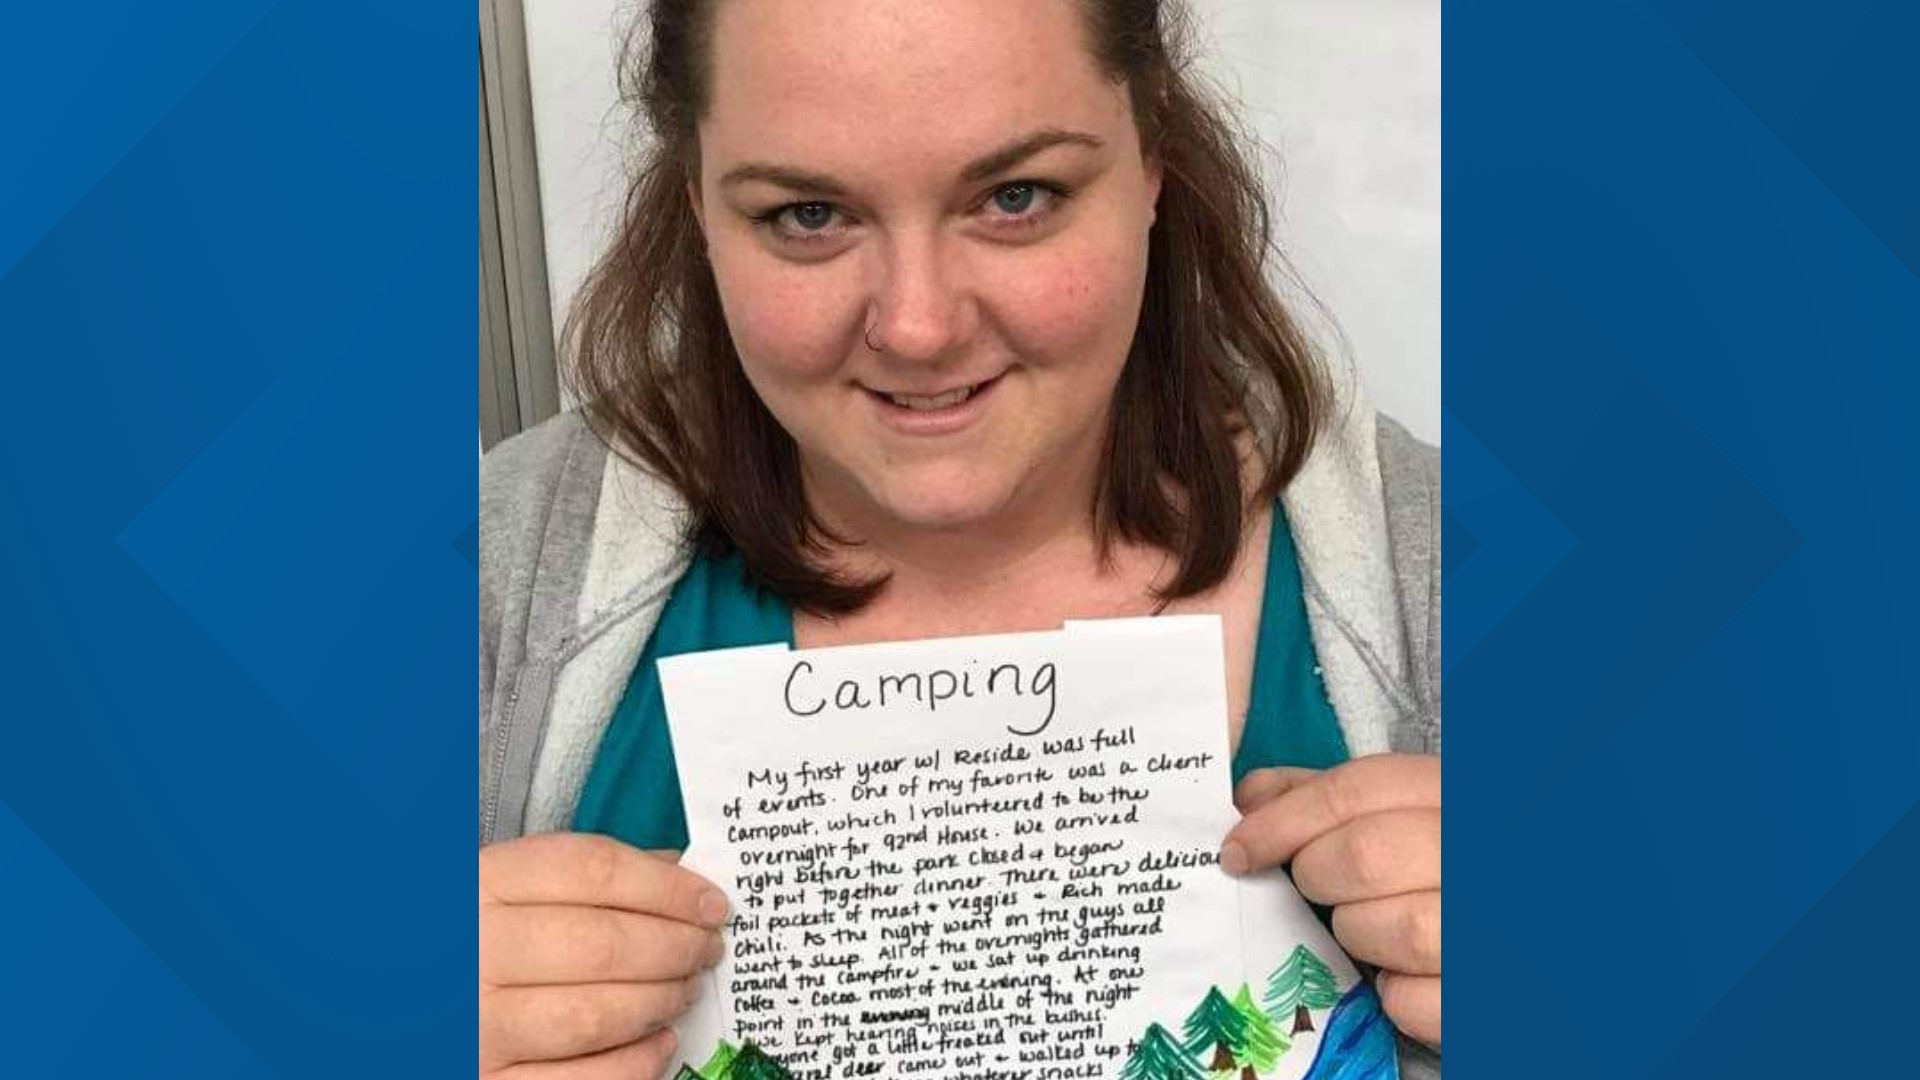 Camping
My first year w/ Reside was full
of events. One of my favorite was a client
campout, which I volunteered to be the
overnight for 92nd House. We arrived
right before the park closed & began
to put together dinner. There were delicious
foil packets of meat & veggies & Rich made
chili. As the night went on the guys all
went to sleep. All of the overnights gathered
around the campfire & we sat up drinking
coffee & cocoa most of the evening. At one
point in the evening middle of the night
we kept hearing noises in the bushes.
yone got a little freaked out until
deer came out & walked up to
whatever snacks